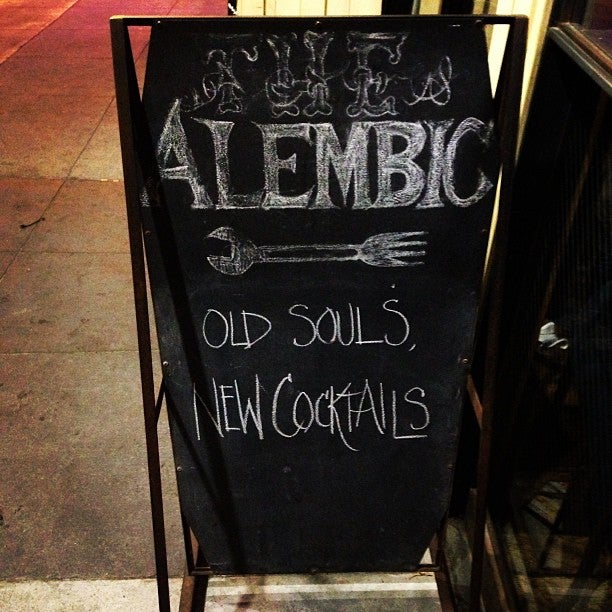 THE
ALEMBIC
OLD SOULS,
NEW COCKTAILS